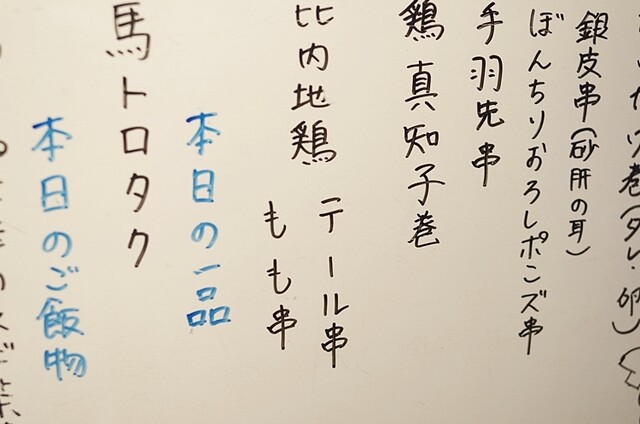 巻(タレ・卵)
銀皮串(砂肝の耳)
ぼんちりおろしポンズ串
手羽先串
鶏真知子巻
比内地鶏 テール串
もも串
本日の一品
馬トロタク
本日のご飯物